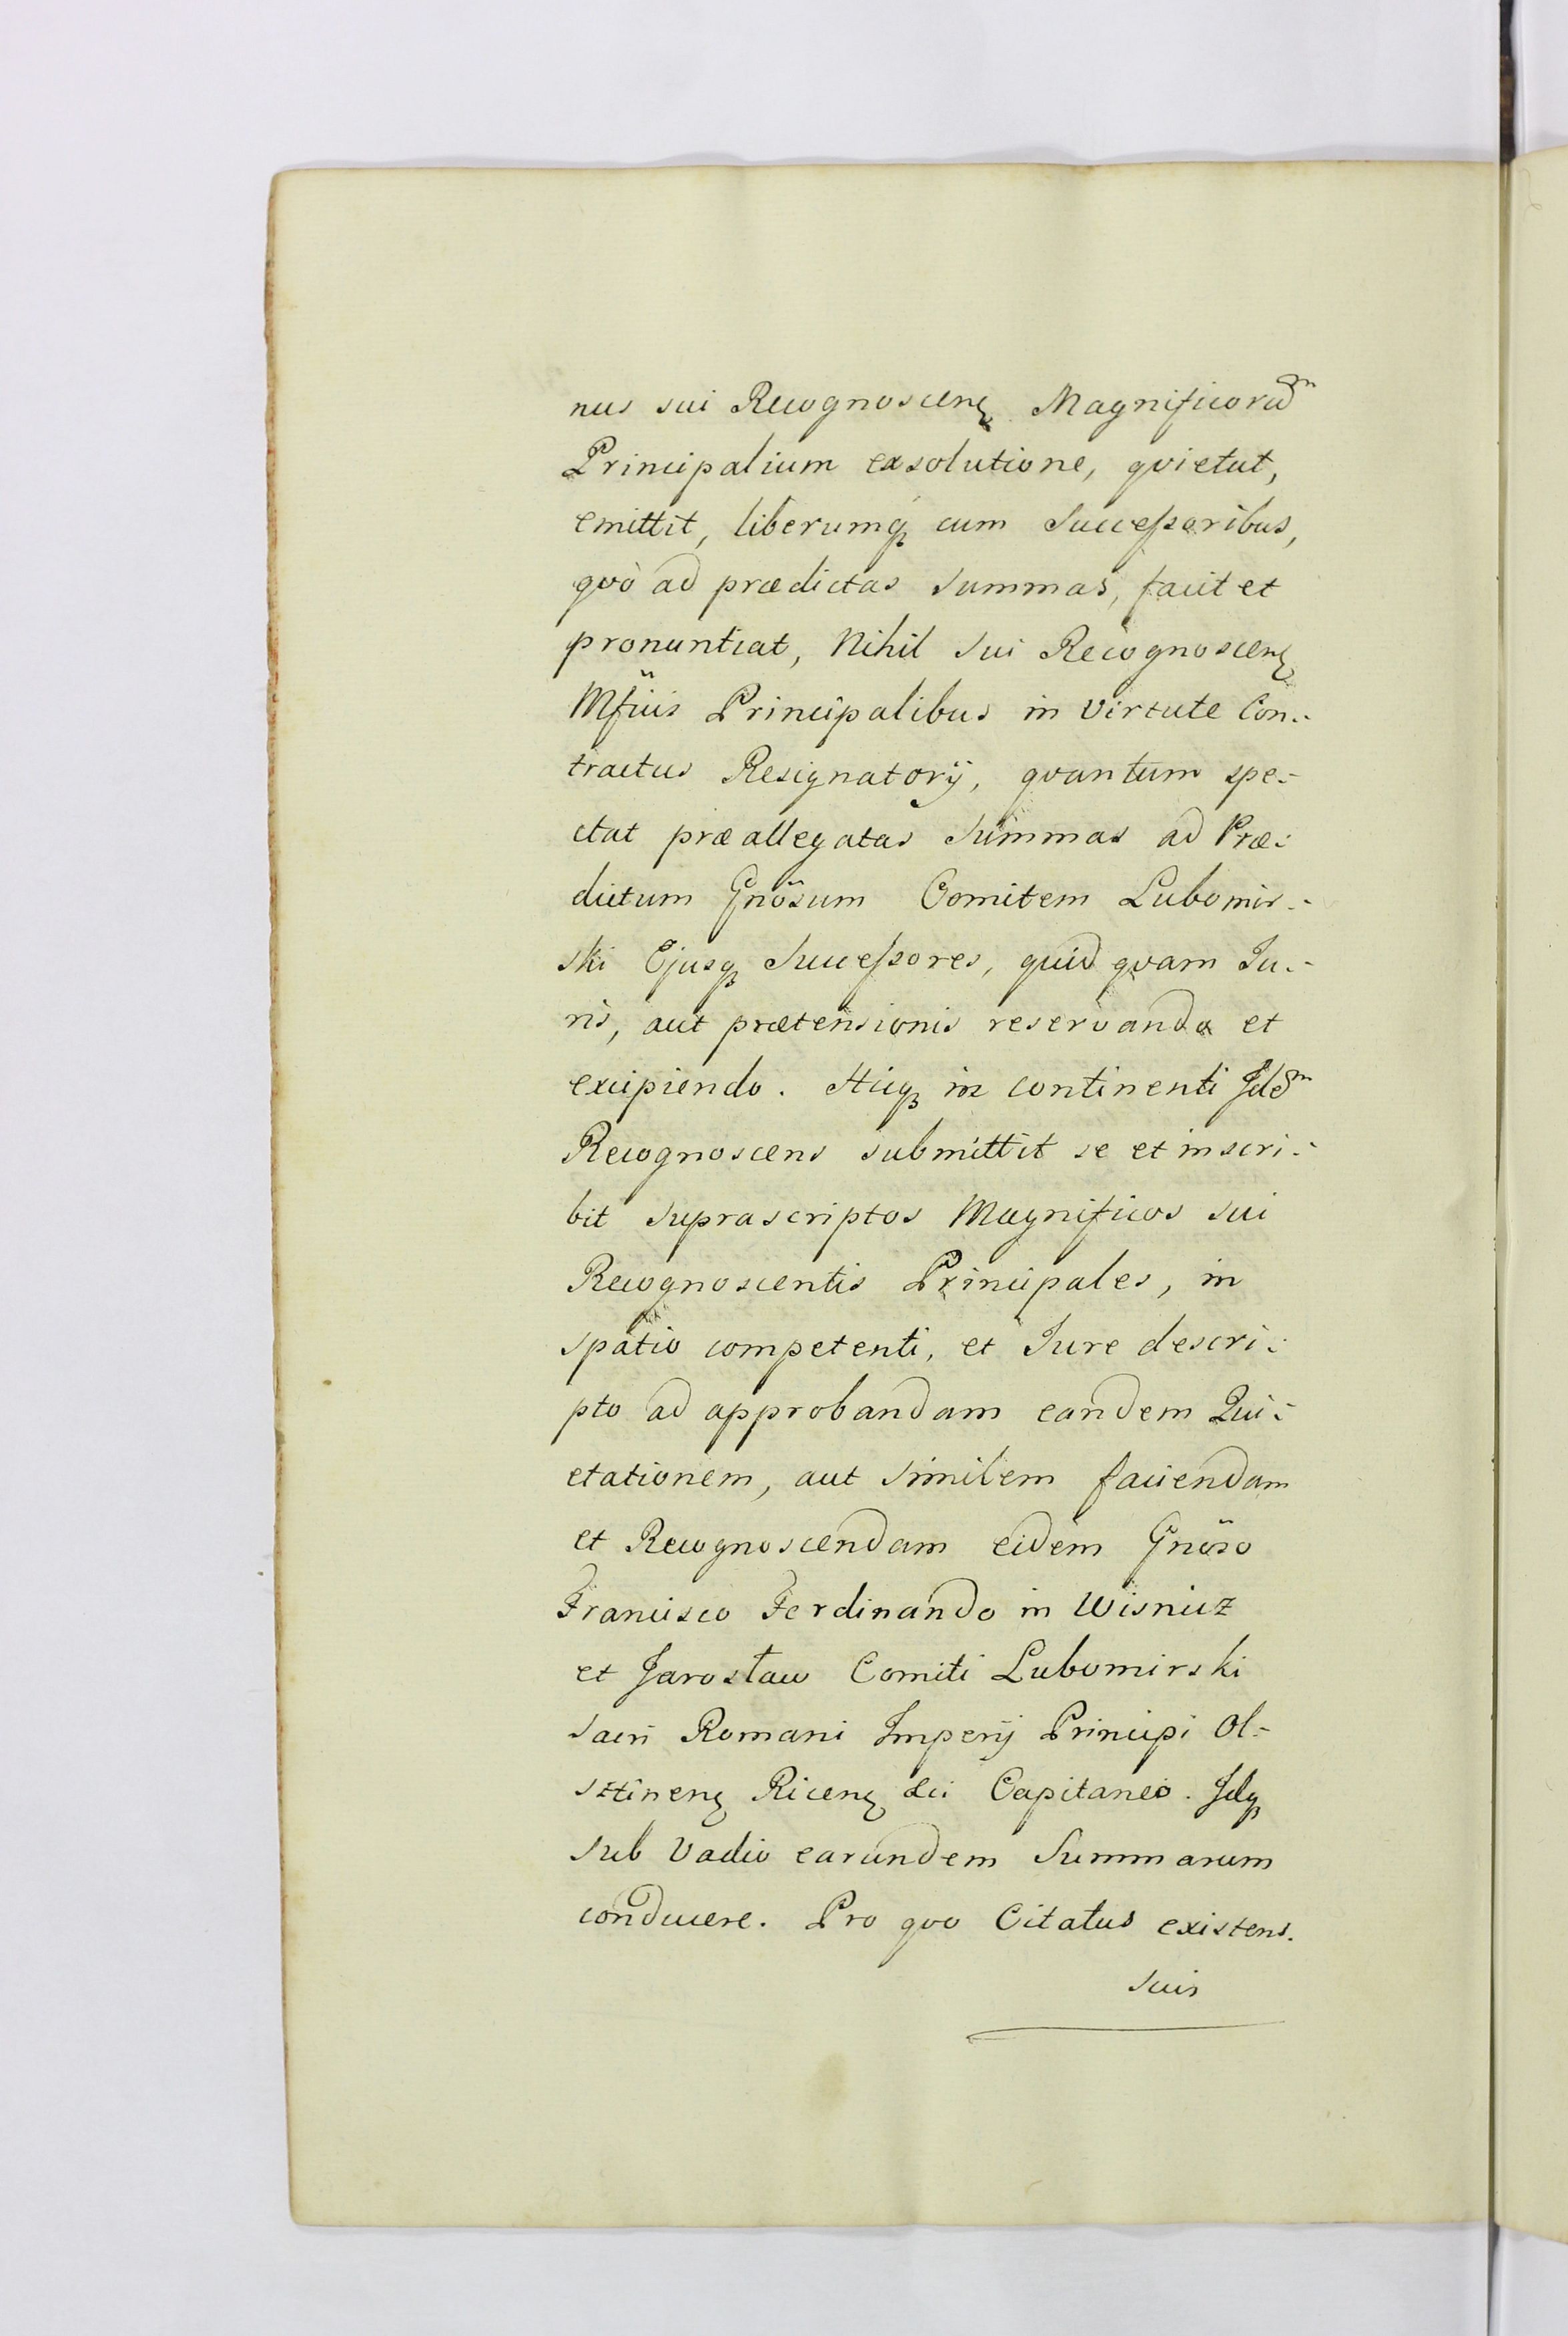 nus sui Recognoscenꝫ Magnificorū
Principalium exsolutione, qvietat,
emittit, liberumqꝫ cum Successoribus,
qvò ad prædictas Summas, facit et
pronuntiat, Nihil Sui Recognoscenꝫ
Mfĩcis Principalibus in Virtute Con-
tractus Resignatorij, qvantum spe-
ctat præallegatas Summas ad Præ-
dictum Gnõsum Comitem Lubomir-
ski Ejusqꝫ Successores, quidqvam Ju-
ris, aut prætensionis reservando et
excipiendo. Hicqꝫ in continenti Idem
Recognoscens submittit se et inscri-
bit suprascriptos Magnificos sui
Recognoscentis Principales, in
spatio competenti, et Jure descri-
pto ad approbandam eandem Qui-
etationem, aut Similem faciendam
et Recognoscendam eidem Gnõso
Francisco Ferdinando in Wisnicz
et Jarosław Comiti Lubomirski
Sacri Romani Imperij Principi Ol-
sztinenꝫ Ricenꝫ &ci Capitaneo. Idqꝫ
Sub Vadio earundem Summarum
conducere. Pro qvo Citatus existens.
Suis